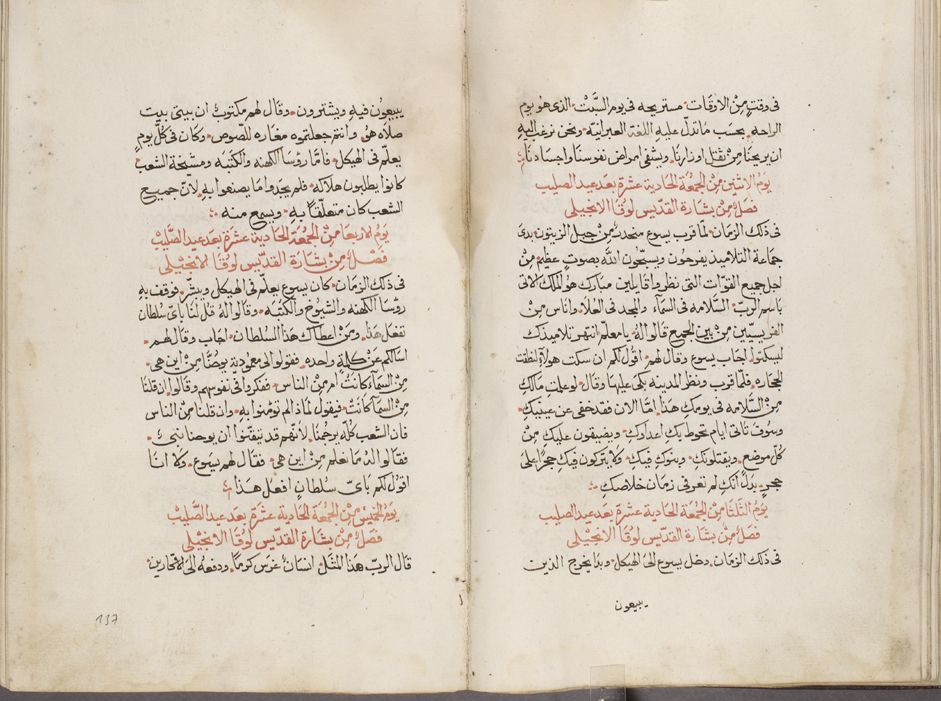 فى وقتٍ مِنْ الاوقات٠ مستريحه فى يوم السَّبْت٠ الذى هو يوم
الراحه٠ بحسَب ما تدلّ عليهِ اللغة العبرانيّه٠ ونحن نرغب اليهِ
ان يريحنا مِنْ ثقل اوزارنا٠ ويشفى امراض نفوسنا واجسادنا
يَومُ الاثنين مِنْ الجُمعَة الحَادية عشَرة بعَد عيد الصَليب
فصَلٌ مِنْ بشارة القدّيس لوقا الانجيلى
فى ذلك الزمَان٠ لما قرب يسوع منحدرًا مِنْ جبل الزيتون بدئ
جماعة التلاميذ يفرحون ويسبّحون اللّٰه بصوتٍ عظيم مِنْ
اجل جميع القوّات التى نظروا٠ قايلين مبارك هو الملك الاتى
باسم الربّ٠ السَّلامه فى السَمآء والمجد فى العُلا٠ واناس مِن
الفريسيّين مِنْ بين الجميع قالوا لهُ يا معلّم انتهر تلاميذك
ليسكتوا٠ اجاب يسوع وقال لهم٠ اقول لكم ان سكت هولآء نطقت
الحجاره٠ فلمّا قرب ونظر المدينه بكى عليها وقال٠ لو علمتِ مالكِ
مِنْ السَّلامه فى يومكِ هذا٠ امّا الان فقد خفى عن عينيكِ٠
وسَوف تاتى ايام تحوط بكِ اعداوكِ٠ ويضيقون عليكِ مِنْ
كلّ موضع٠ ويقتلونكِ٠ وبنوكِ فيكِ٠ ولا يتركون فيكِ حجرًا على
حجرٍ٠ بدل انكِ لم تعرفى زمان خلاصكِ
يَومُ الثلَثا مِنْ الجُمعَة الحَادية عشَرة بعَد عيد الصَليب
فصَلٌ مِنْ بشارة القدّيس لوقا الانجيلى
فى ذلك الزمَان٠ دخل يسوع الى الهيكل٠ وبدا يخرج الذين
يبيعون
يبيعُون فيهِ ويشترون٠ وقال لهم مكتوبٌ ان بيتى بيت
صلاه هُو٠ وانتم جعلتموه مغاره للصوص٠ وكان فى كلّ يومٍ
يعلّم فى الهيكل٠ فامّا روسَا الكهنه والكتبه ومشيخة الشعب
كانوا يطلبون هلاكه٠ فلم يجدوا ما يصنعوا بهِ٠ لانّ جميع
الشعب كان متعلّقًا بهِ٠ ويسمع منه
يَومُ الاربعا مِنْ الجُمعَة الحَادية عشَرة بعَد عيد الصَّليب
فصَلٌ مِنْ بشارَة القدّيس لوقا الانجيلى
فى ذلك الزمَان٠ كان يسوع يعلّم فى الهيكل ويبشّر٠ فوقف بهِ
روسَا الكهنه والشيوخ والكتبَه٠ وقالوا له قل لنا باىّ سُلطان
تفعل هذا٠ ومَنْ اعطاك هذا السُلطان٠ اجاب وقال لهم٠
اسَالكم عَنْ كلمةٍ واحده٠ فقولوا لى معموديّة يوحنّا مِنْ اين هى٠
مِنْ السمآء كانتْ ام مِن الناس٠ ففكروا فى نفوسهم وقالوا٠ ان قلنا
مِنْ السمآء كانتْ٠ فيقول لماذا لم تومنوا بهِ٠ وان قلنا مِنْ الناس
فانّ الشعب كلّه يرجمنا٠ لأنّهم قد تيقّنوا أن يوحنا نبىٌّ٠
فقالوا لهُ ما نعلم مِنْ اين هى٠ فقال لهم يسوع٠ ولا انا
اقول لكم باىّ سُلطانٍ افعل هذا
يَومُ الخميسْ مِنْ الجُمعَة الحَادية عشَرة بعَد عيد الصَّليب
فصَلٌ مِنْ بشَارة القدّيس لوُقَا الانجيلى
قال الربّ هذا المثل٠ انسَانٌ غرس كرمًا٠ ودفعهُ الى الافجارين٠
137